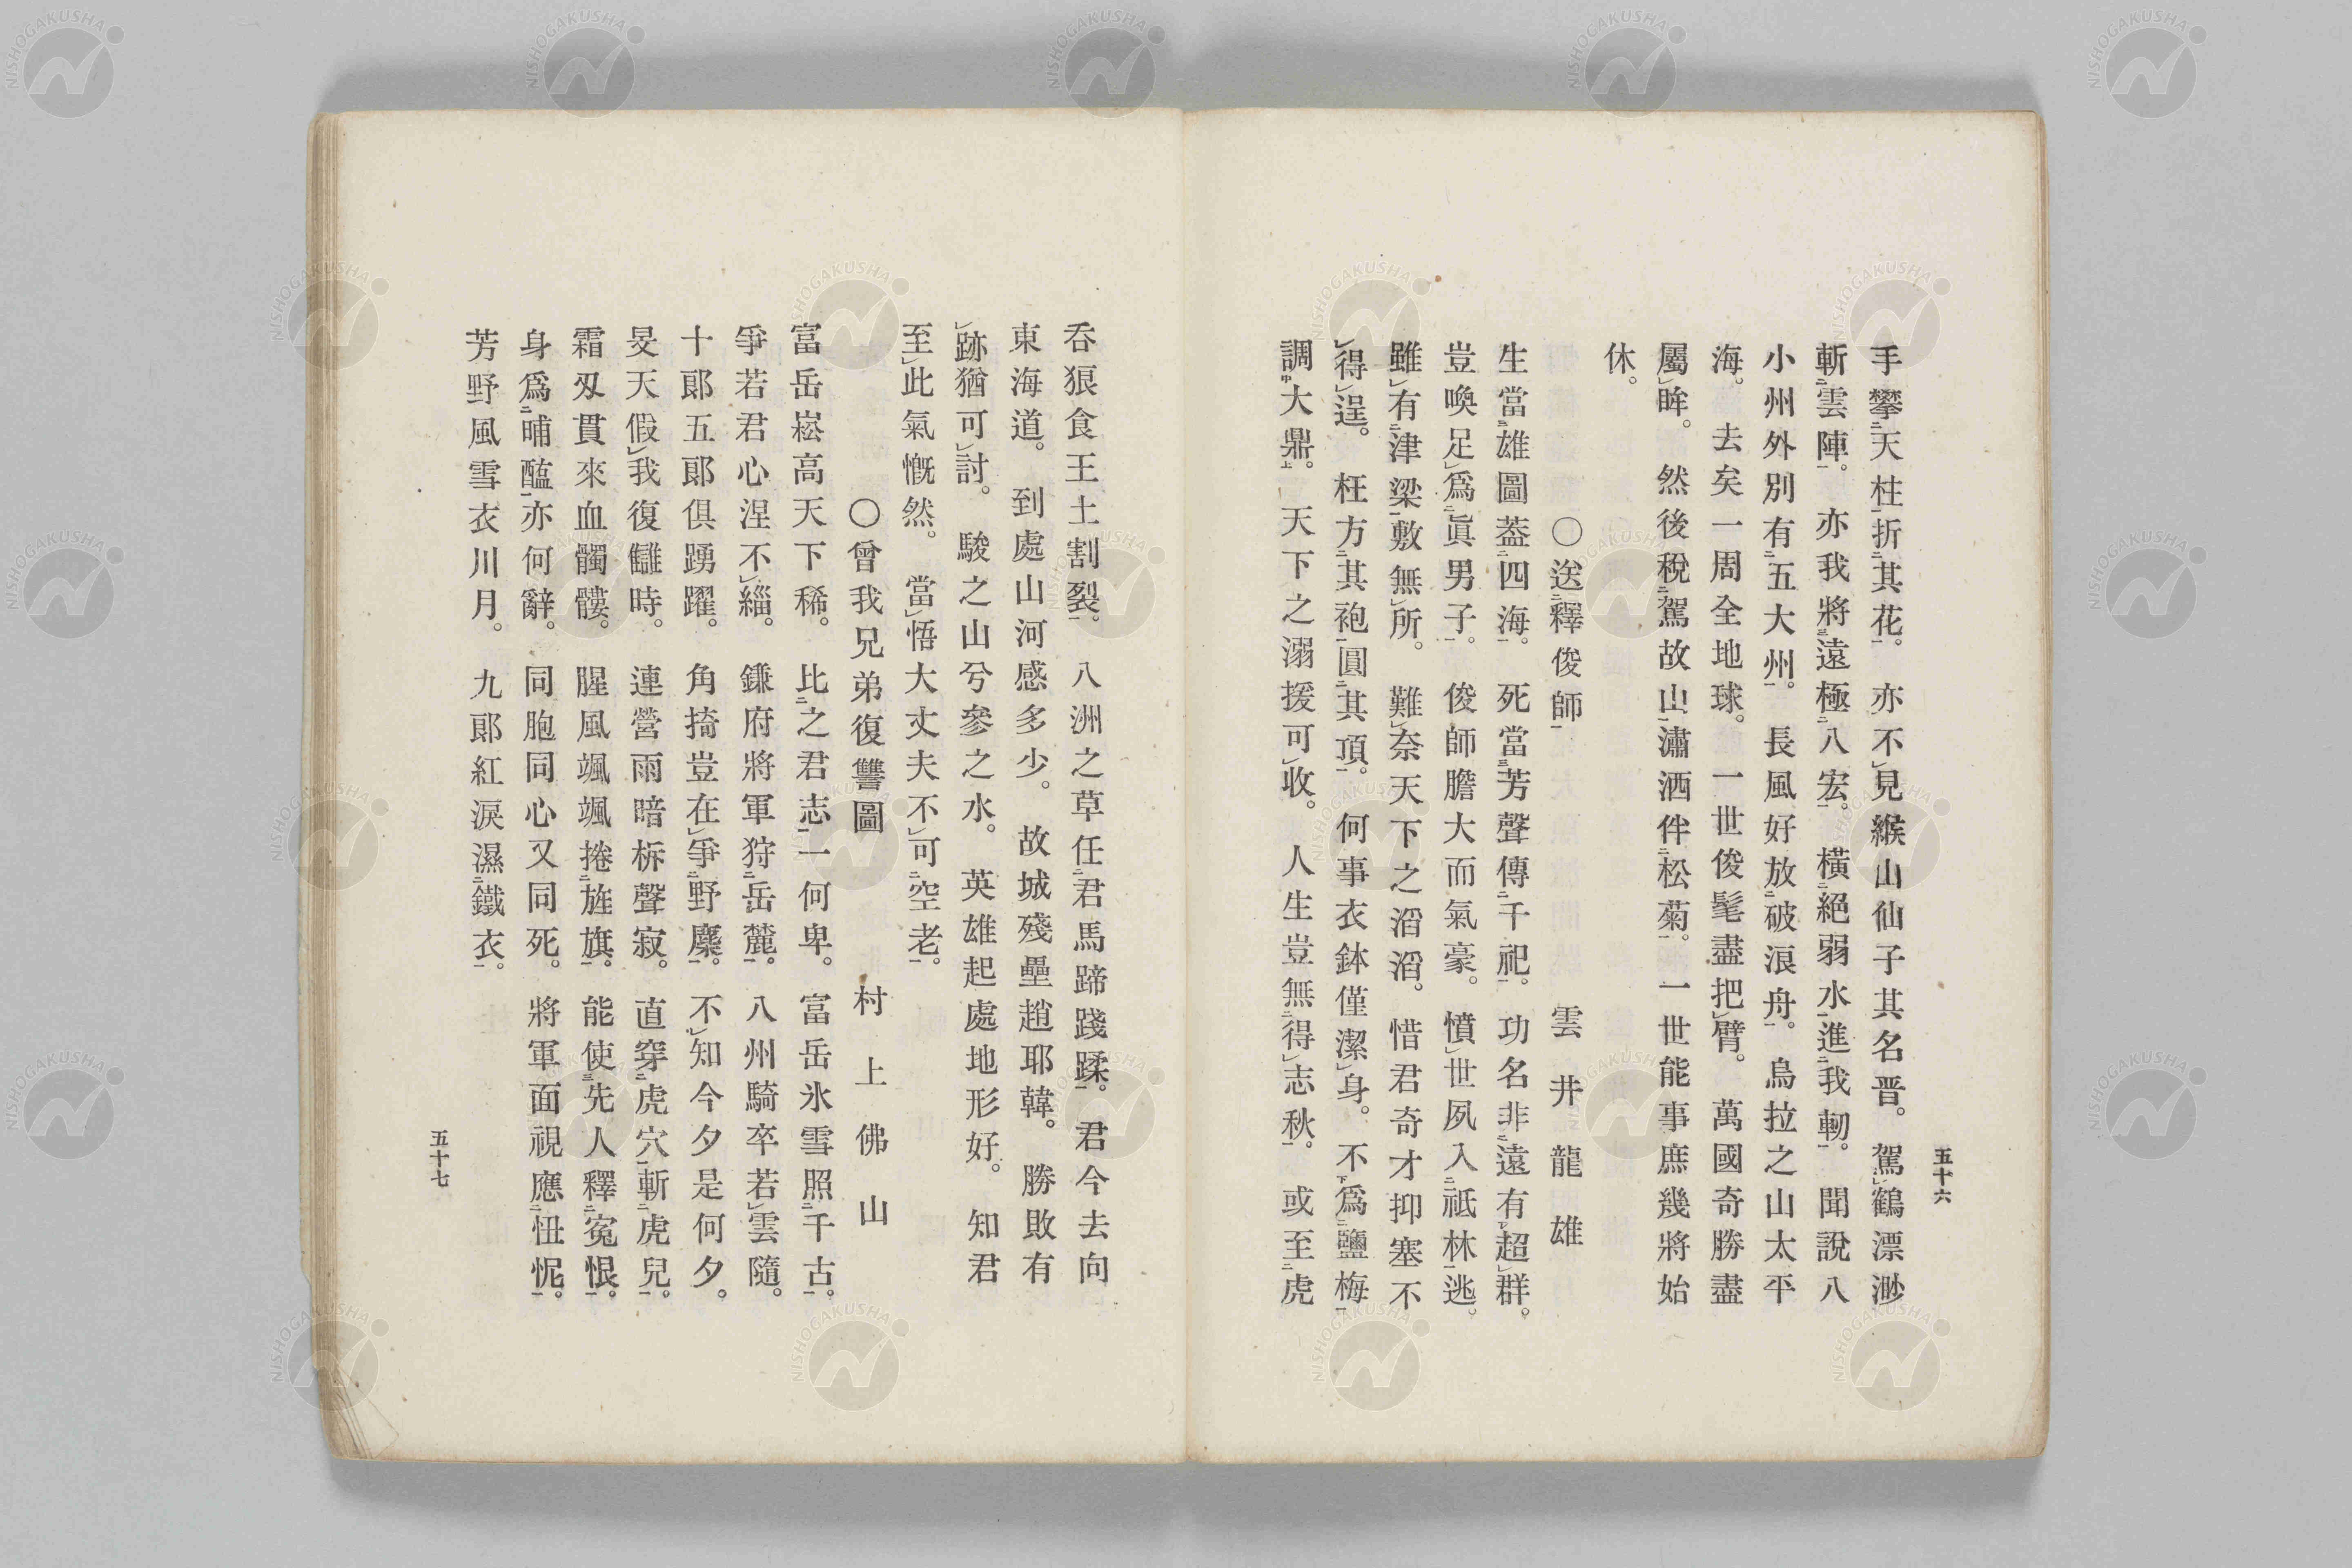 五十六
手攀天柱折其花。亦不見緱山仙子其名晋。駕鶴漂渺
斬雲陣。亦我將遠極八宏。橫絕弱水進我軔。聞說八
小州外別有五大州。長風好放破浪舟。烏拉之山太平
海。去矣一周全地球。一世俊髦盡把臂。萬國奇勝盡
屬眸。然後稅駕故山瀟洒伴松菊。一世能事庶幾將始
休。
〇送釋俊師 雲井龍雄
生當雄圖蓋四海。死當芳聲傳千祀。功名非遠有超群。
豈喚足爲眞男子。俊師膽大而氣豪。憤世夙入祗林逃。
雖有津梁敷無所。難奈天下之滔滔。惜君奇才抑塞不
得逞。枉方其袍圓其頂。何事衣鉢僅潔身。不爲鹽梅
調大鼎。天下之溺援可收。人生豈無得志秋。或至虎
呑狼食王土割裂。八洲之草任君馬蹄踐蹂。君今去向
東海道。到處山河感多少。故城殘壘趙耶韓。勝敗有
跡猶可討。駿之山兮參之水。英雄起處地形好。知君
至此氣慨然。當悟大丈夫不可空老。
〇曾我兄弟復讐圖 村上佛山
富岳崧高天下稀。比之君志一何卑。富岳氷雪照千古。
爭若君心涅不緇。鎌府將軍狩岳麓。八州騎卒若雲隨。
十郞五郞俱踴躍。角掎豈在爭野麋。不知今夕是何夕。
旻天假我復讎時。連營雨暗柝聲寂。直穿虎穴斬虎兒。
霜刄貫來血髑髏。腥風颯颯捲旌旗。能使先人釋冤恨。
身爲晡醢亦何辭。同胞同心又同死。將軍面視應忸怩。
芳野風雪衣川月。九郞紅淚濕鐵衣。
五十七